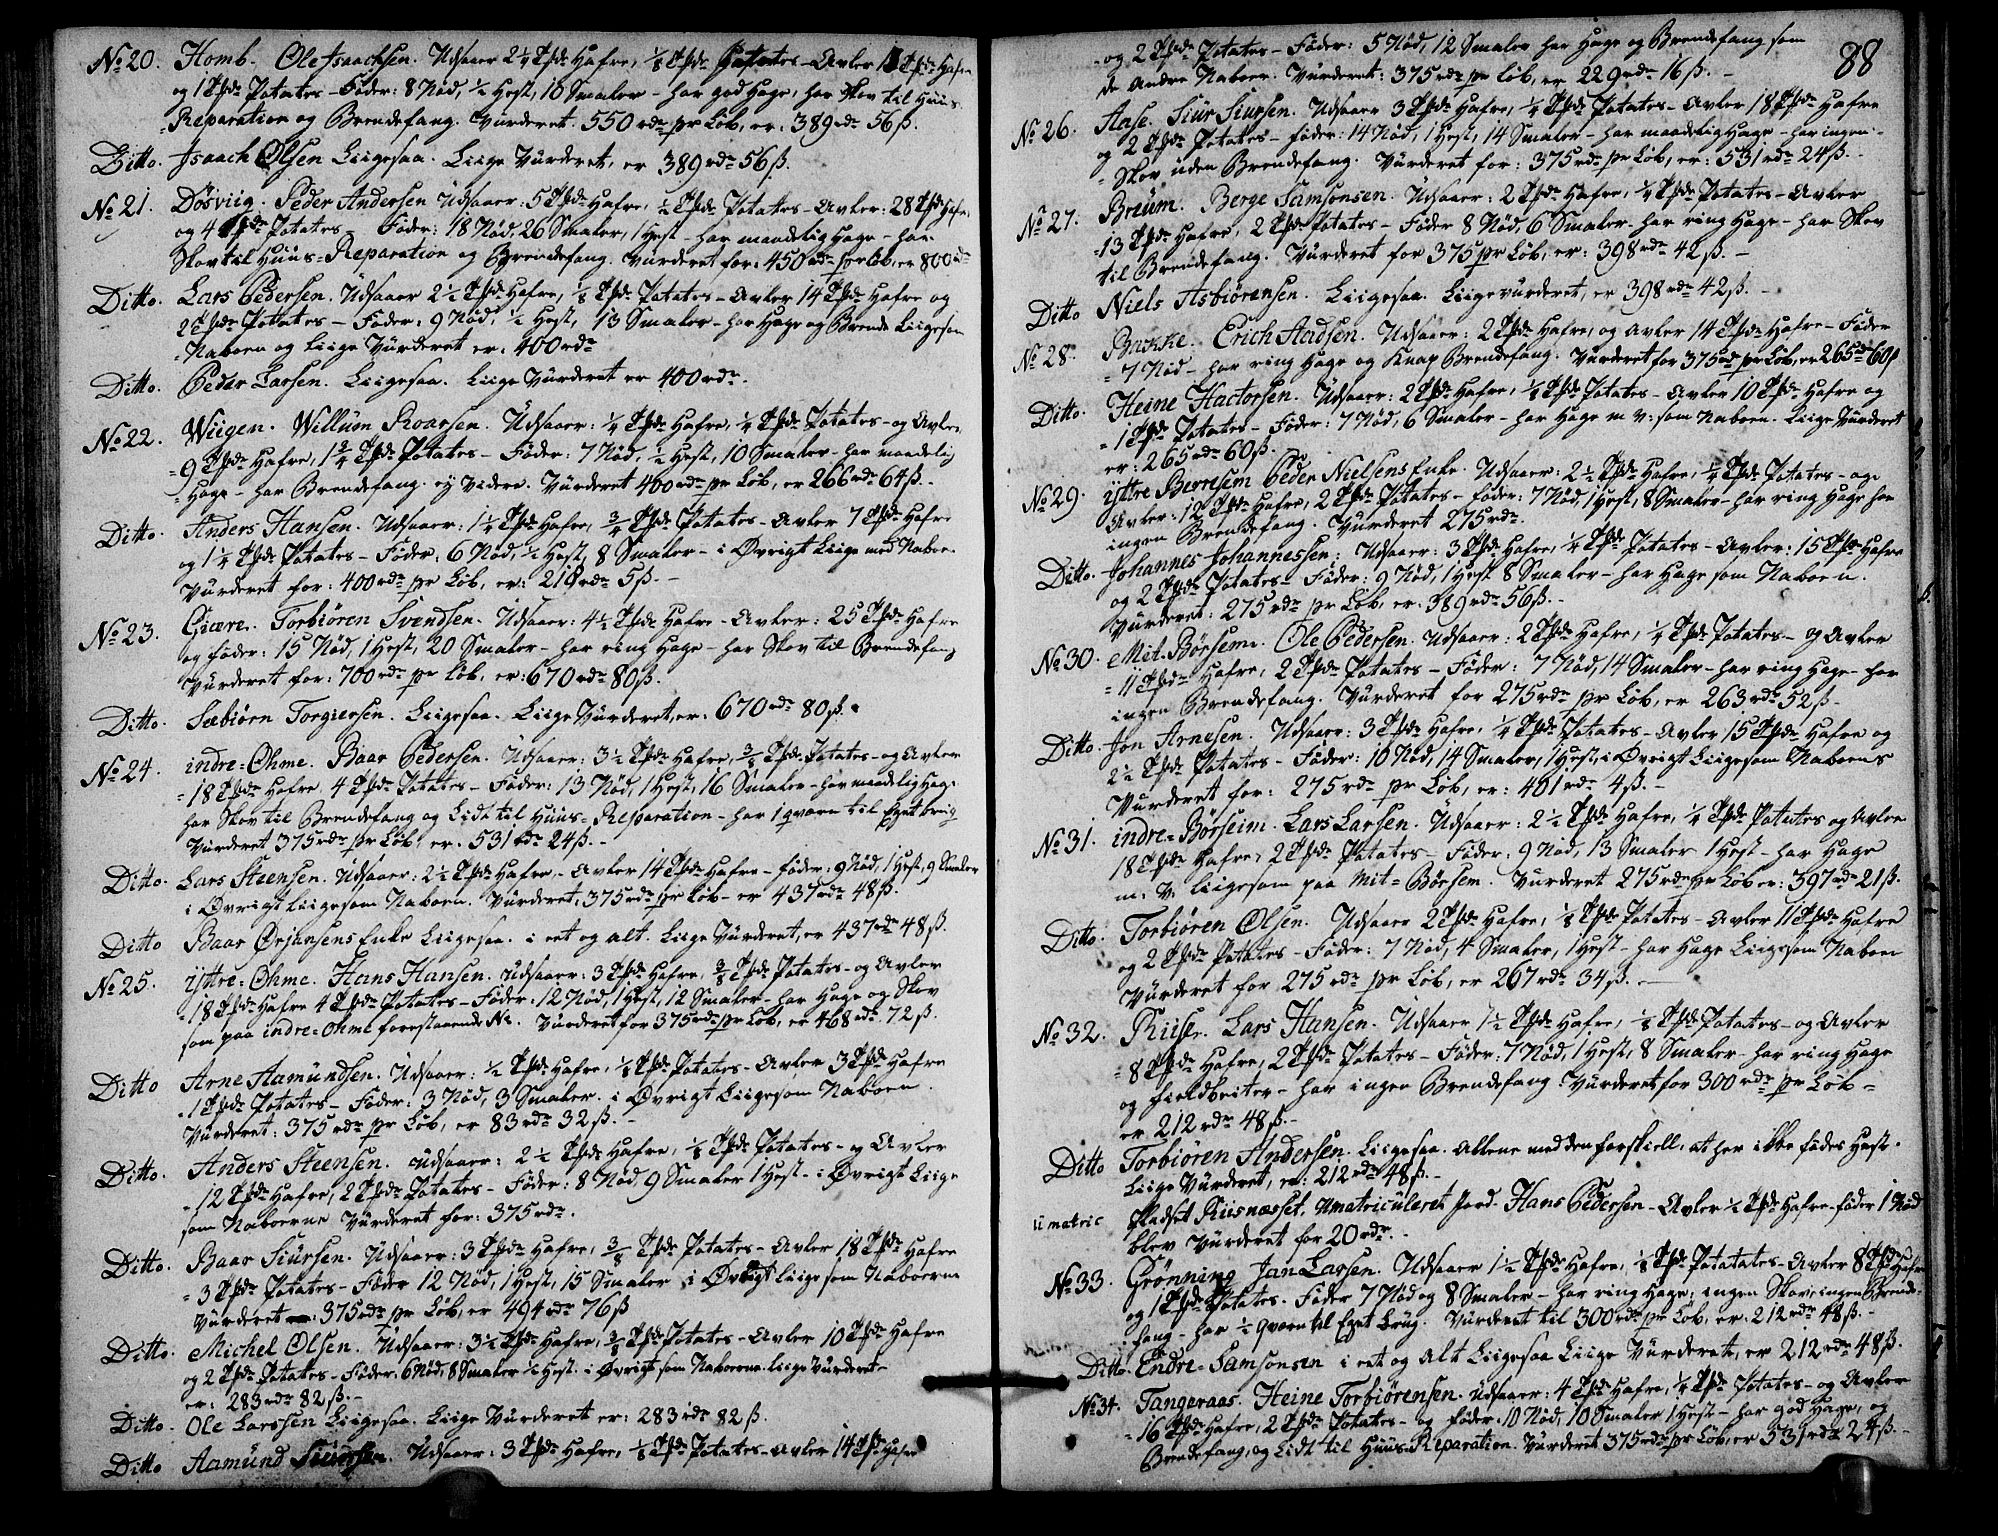 No 20. Homb. Ole Isaachsen. Udsaaer 2¼ Tde Hafre, ⅛ Tde Potates - Avler Tde Hafre
og 1 Tde Potates - Föder: 8 Nöd, ½ Hest, 10 Smaler - har god Hage, har Skov til Huus
Reparation og Brendefang. Vurderet. 550 rdr pr Löb, er: 389 rdr 56 ß.
Ditto. Isaach Olsen Liigesaa. Liige Vurderet, er 389 rdr 56 ß.
No 21. Dösviig. Peder Andersen Udsaaer: 5 Tde Hafre, ½ Tde Potates - Avler: 28 Tde Hafre,
og 4 Tde Potates - Föder: 18 Nöd, 26 Smaler, 1 Hest - har maadelig Hage - har
Skov til Huus-Reparation og Brendefang. Vurderet for: 450 rdr pr Löb, er 800 rdr
Ditto. Lars Pedersen. Udsaaer 2½ Tde Hafre, ⅛ Tde Potates - Avler 14 Tde Hafre og
2 Tde Potates - Föder: 9 Nöd, ½ Hest, 13 Smaler - har Hage og Brende Liigesom
Naboen og Liige Vurderet er: 400 rdr
Ditto. Peder Larsen. Liigesaa. Liige Vurderet er 400 rdr.
No 22. Wiigen. Willum Roarsen. Udsaaer: ¼ Tde Hafre, ¼ Tde Potates - og Avler
9 Tde Hafre, 1¾ Tde Potates - Föder: 7 Nöd, ½ Hest, 10 Smaler - har maadelig
Hage - har Brendefang. ej videre. Vurderet 400 rdr pr Löb, er 266 rdr 64 ß.
Ditto. Anders Hansen. Udsaaer: 1¼ Tde Hafre, ¾ Tde Potates - Avler 7 Tde Hafre
og 1¼ Tde Potates - Föder: 6 Nöd, ½ Hest, 8 Smaler - i Øvrigt Liige med Naboe.
Vurderet for: 400 rdr pr Löb, er: 218 rdr 5 ß. -
No 23. Giære. Torbiören Svendsen. Udsaaer: 4½ Tde Hafre - Avler: 25 Tde Hafre
og föder: 15 Nöd, 1 Hest, 20 Smaler - har ring Hage - har Skov til Brendefang
Vurderet for: 700 rdr pr Löb, er: 670 rdr 80 ß.
Ditto. Sæbiörn Torgiersen. Liigesaa. Liige Vurderet, er: 670 rdr 80 ß.
No 24. indre-Ohme. Baar Pedersen. Udsaaer: 3½ Tde Hafre, ⅜ Tde Potates - og Avler
18 Tde Hafre, 4 Tde Potates - Föder: 13 Nöd, 1 Hest, 16 Smaler - har maadlig Hage
har Skov til Brendefang og Lidt til Huus-Reparation - har 1 qværn til Eget brug
Vurderet 375 rdr pr Löb, er: 531 rdr 24 ß. -
Ditto. Lars Steensen. Udsaaer: 2½ Tde Hafre - Avler 14 Tde Hafre - föder: 9 Nöd, 1 Hest, 9 Smaler
i Øvrigt Liigesom Naboen. Vurderet: 375 rdr pr Löb - er 437 rdr 48 ß.
Ditto Baar Ørjansens Enke Liigesaa. i eet og alt. Liige Vurderet, er 437 rdr 48 ß.
No 25. ÿttre-Ohme. Hans Hansen. Udsaaer: 3 Tde Hafre, ⅜ Tde Potates - og Avler
18 Tde Hafre 4 Tde Potates - Föder: 12 Nöd, 1 Hest, 12 Smaler - har Hage og Skov
som paa indre-Ohme forestaaende No. Vurderet for 375 rdr pr Löb, er 468 rdr 72 ß.
Ditto Arne Aamundsen. Udsaaer: ½ Tde Hafre, ⅛ Tde Potates - Avler 3 Tde Hafre
1 Tde Potates - Föder: 3 Nöd, 3 Smaler. i Øvrigt Liigesom Naboen.
Vurderet: 375 rdr pr Löb, er 83 rdr 32 ß. -
Ditto. Anders Steensen. Udsaaer: 2½ Tde Hafre, ⅛ Tde Potates - og Avler
12 Tde Hafre, 2 Tde Potates - Föder: 8 Nöd, 9 Smaler 1 Hest - i Øvrigt Liige
som Naboerne Vurderet for: 375 rdr.
Ditto. Baar Siursen. Udsaaer: 3 Tde Hafre, ⅜ Tde Potates - Avler 18 Tde Hafre
3 Tde Potates - Föder 12 Nöd, 1 Hest, 15 Smaler i Øvrigt Liigesom Naboerne
Vurderet 375 rdr pr Löb, er 494 rdr 76 ß
Ditto. Michel Olsen. Udsaaer: 3½ Tde Hafre, ⅜ Tde Potates - Avler 10 Tde Hafre
og 2 Tde Potates - Föder: 6 Nöd, 8 Smaler ½ Hest: i Øvrigt som Naboerne Liige Vurderet -
er: 283 rdr 82 ß. -
Ditto. Ole Larssen Liigesaa. Liige Vurderet er: 283 rdr 82 ß.
Ditto Aamund Siursen. Udsaaer: 3 Tde Hafre, ⅛ Tde Potates - Avler 14 Tde Hafre
88
og 2 Tde Potates - Föder: 5 Nöd, 12 Smaler har Hage og Brendefang som
de Andre Naboer. Vurderet: 375 rdr pr Löb, er 229 rdr 16 ß. -
No 26. Aase. Siur Siursen. Udsaaer 3 Tde Hafre, ¼ Tde Potates - Avler 18 Tde Hafre
og 2 Tde Potates - föder: 14 Nöd, 1 Hest, 14 Smaler - har maadelig Hage - har ingen
Skov uden Brendefang. Vurderet for: 375 rdr pr Löb, er: 531 rdr 24 ß. -
No 27. Breüm. Berge Samsonsen. Udsaaer: 2 Tde Hafre, ¼ Tde Potates - Avler
13 Tde Hafre, 2 Tde Potates - Föder 8 Nöd, 6 Smaler - har ring Hage - har Skov
til Brendefang. Vurderet for 375 pr Löb, er: 398 rdr 42 ß. -
Ditto Niels Asbiörensen. Liigesaa. Liige vurderet, er 398 rdr 42 ß. -
No 28. Backke. Erich Aadsen. Udsaaer: 2 Tde Hafre, og Avler 14 Tde Hafre - Föder
7 Nöd - har ring Hage og Knap Brendefang. Vurderet for 375 rdr pr Löb, er 265 rdr 60 ß
Ditto. Heine Hactorsen. Udsaaer: 2 Tde Hafre, ⅛ Tde Potates - Avler 10 Tde Hafre og
1 Tde Potates - Föder: 7 Nöd, 6 Smaler - har Hage m. v: som Naboen. Liige Vurderet
er: 265 rdr 60 ß.
No 29. ÿttre Berresem Peder Nielsens Enke. Udsaaer: 2½ Tde Hafre, ¼ Tde Potates - og
Avler: 12 Tde Hafre, 2 Tde Potates - föder: 7 Nöd, 1 Hest, 8 Smaler - har ring Hage har
ingen Brendefang. Vurderet 275 rdr.
Ditto. Johannes Johannessen: Udsaaer: 3 Tde Hafre, ¼ Tde Potates - Avler: 15 Tde Hafre
og 2 Tde Potates - Föder: 9 Nöd, 1 Hest 8 Smaler - har Hage som Naboen.
Vurderet: 275 rdr pr Löb, er: 389 rdr 56 ß. -
No 30. Mit-Börsem. Ole Pedersen. Udsaaer: 2 Tde Hafre, ¼ Tde Potates - og Avler
11 Tde Hafre, 2 Tde Potates - Föder: 7 Nöd, 14 Smaler - har ring Hage - har
ingen Brendefang. Vurderet for 275 rdr pr Löb, er 263 rdr 52 ß -
Ditto. Jon Arnesen. Udsaaer: 3 Tde Hafre, ¼ Tde Potates - Avler 15 Tde Hafre og
2½ Tde Potates - Föder: 10 Nöd, 14 Smaler, 1 Hest, i Øvrigt Liigesom Naboens
Vurderet for: 275 rdr pr Löb, er: 401 rdr 4 ß. -
No 31. indre-Börseim. Lars Larsen. Udsaaer: 2½ Tde Hafre, ¼ Tde Potates og Avler
18 Tde Hafre, 2 Tde Potates - Föder: 9 Nöd, 13 Smaler 1 Hest - har Hage
m. v. liigesom paa Mit-Börsem. Vurderet 275 rdr pr Löb er: 397 rdr 21 ß.
Ditto. Torbiören Olsen. Udsaaer 2 Tde Hafre, ⅛ Tde Potates - Avler 11 Tde Hafre
og 2 Tde Potates - Föder: 7 Nöd, 4 Smaler, 1 Hest - har Hage Liigesom Naboen
Vurderet for 275 rdr pr Löb, er 267 rdr 34 ß. -
No 32. Riise. Lars Hansen. Udsaaer 1½ Tde Hafre, ⅛ Tde Potates - og Avler
8 Tde Hafre, 2 Tde Potates - Föder: 7 Nöd, 1 Hest, 8 Smaler - har ring Hage
og field beiter - har ingen Brendefang Vurderet for 300 rdr pr Löb -
er 212 rdr 48 ß. -
Ditto Torbiören Andersen. Liigesaa. Allene med den forskiell, at her ikke födes Hest.
Liige Vurderet, er: 212 rdr 48 ß. -
umatric Pladset Riisnæsset, Umatriculeret Jord. Hans Pedersen - Avler ½ Tde Hafre - föder 1 Nöd
blev Vurderet for 20 rdr. -
No 33. Grönning Jan Larsen. Udsaaer 1½ Tde Hafre, ⅛ Tde Potatates - Avler 8 Tde Hafre
og 1 Tde Potates. Föder 7 Nöd og 8 Smaler - har ring Hage; ingen Skov, ingen Brende-
fang - har ½ Qværn til Eget Brug. Vurderet til 300 rdr pr Löb, er: 212 rdr 48 ß. -
Ditto. Endre Samsonsen i eet og Alt Liigesaa Liige Vurderet, er 212 rdr 48 ß.
No 34. Tangeraas. Heine Torbiörensen. Udsaaer: 4 Tde Hafre, ¼ Tde Potates - og Avler
16 Tde Hafre, 2 Tde Potates - og föder: 10 Nöd, 10 Smaler 1 Hest - har god Hage, og
Brendefang, og Lidt til Huus-Reparation. Vurderet 375 rdr pr Löb, er 531 rdr 24 ß. -